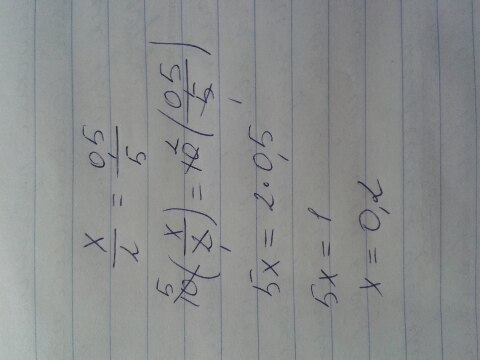 x/2 = 0,5/5
5 10(x/2) = 10 2 (0,5/5)
5x = 2·0,5
5x = 1
x = 0,2